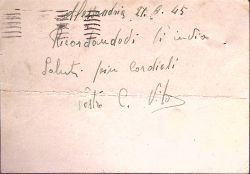 Alessandria 26.8.45
Ricordandodi Vi invio
Saluti più cordiali
Vostro C. Vito